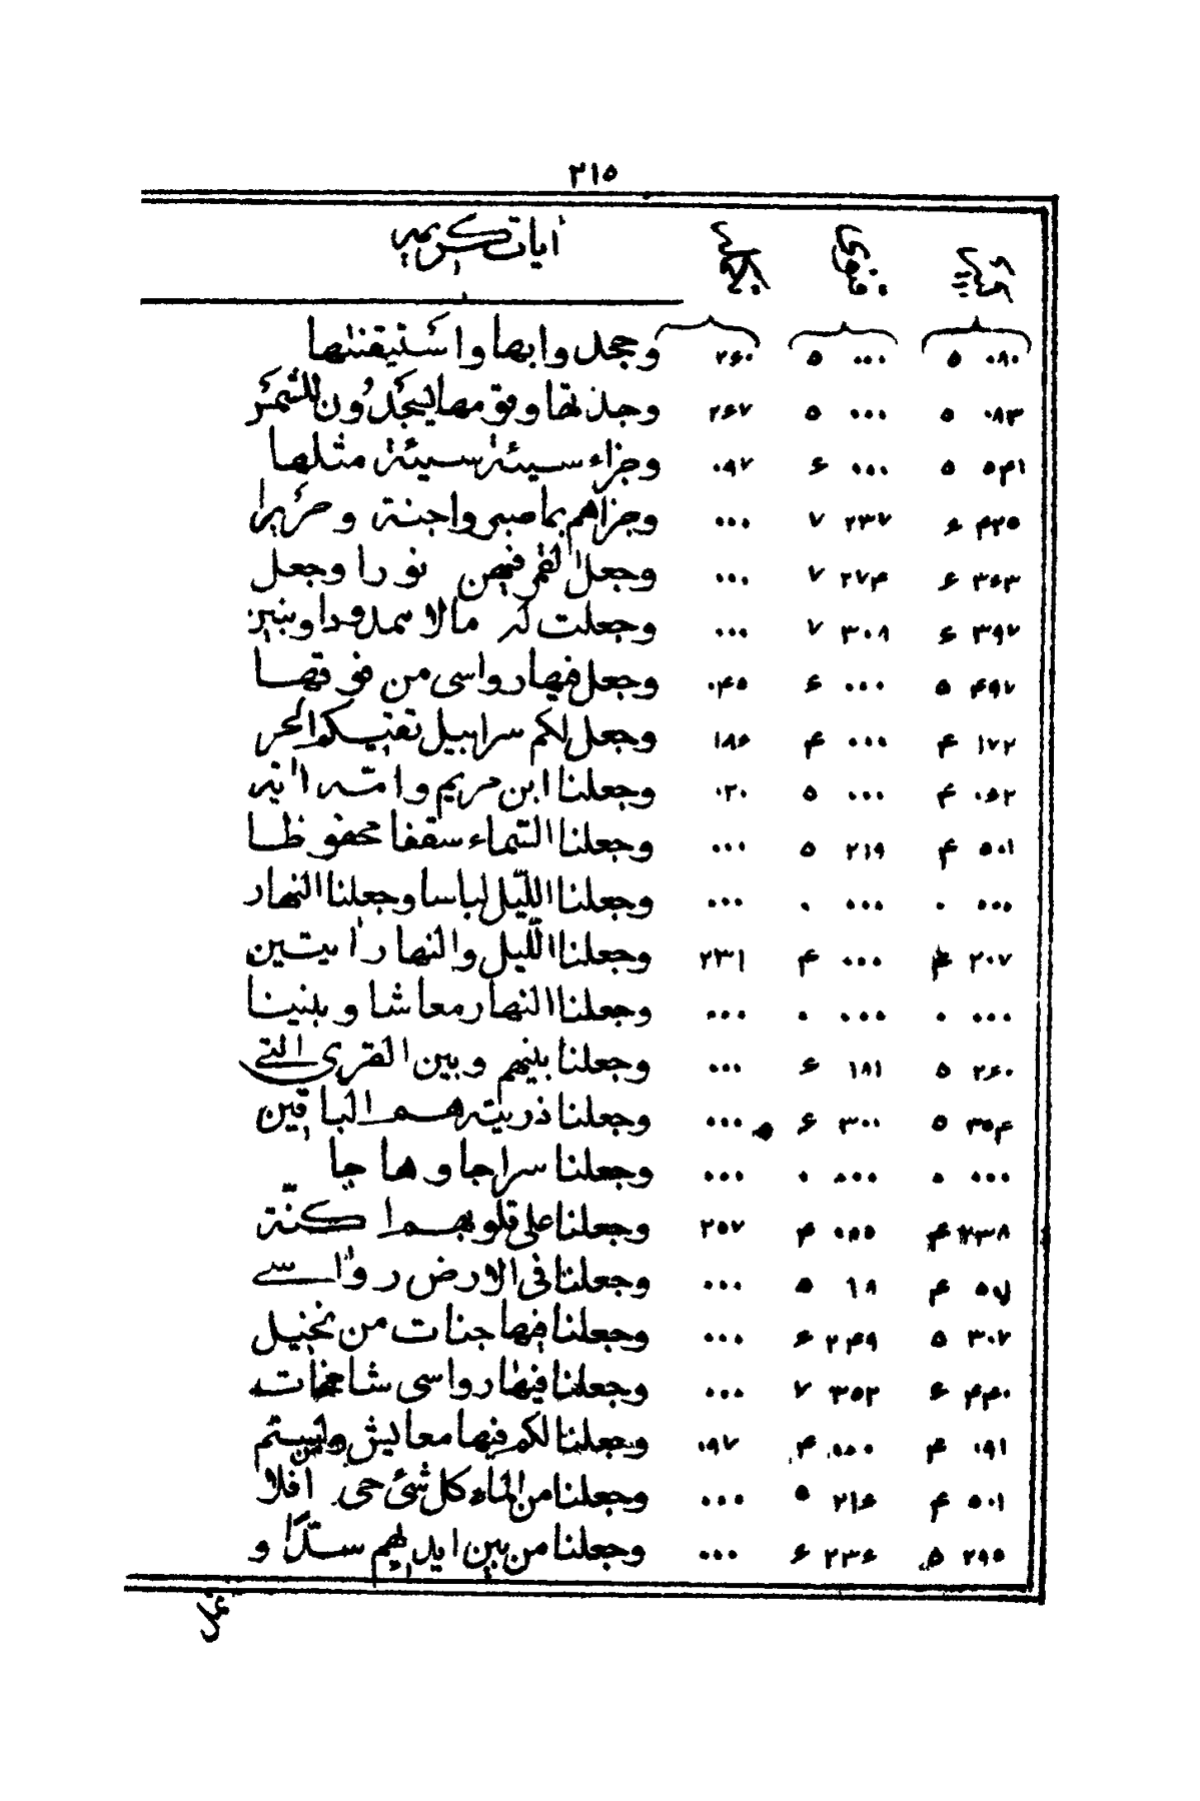 ٣١٥
آيات كريمه
٠٨٠ ٥ ٠٠٠ ٥ ٢۶٠ وجحدوا بها واستيقنتها
٠٨٣ ٥ ٠٠٠ ٥ ٢۶٧ وجدتها وقومها يسجدون للشمس
٥۴١ ٥ ٠٠٠ ۶ ٠٩٧ وجزاء سيئة سيئة مثلها
۴٢٥ ۶ ٢٣٧ ٧ ٠٠٠ وجزاهم بما صبروا جنة و حريرا
٣۶٣ ۶ ٢٧۴ ٧ ٠٠٠ وجعل القمر فيهن نورا وجعل
٣٩٧ ۶ ٣٠٨ ٧ ٠٠٠ وجعلت له مالا ممدودا وبنين
۴٩٧ ٥ ٠٠٠ ۶ ٠۴٥ وجعل فيها رواسى من فوقها
١٧٢ ۴ ٠٠٠ ۴ ١٨۶ وجعل لكم سرابيل تقيكم الحر
٠۶٢ ۴ ٠٠٠ ٥ ٠٢٠ وجعلنا ابن مريم وامه اية
٥٠١ ۴ ٢١٩ ٥ ٠٠٠ وجعلنا السماء سقفا محفوظا
٠٠٠ ٠ ٠٠٠ ٠ ٠٠٠ وجعلنا الليل لباسا وجعلنا النهار
٢٠٧ ۴ ٠٠٠ ۴ ٢٣١ وجعلنا الليل والنهار ايتين
٠٠٠ ٠ ٠٠٠ ٠ ٠٠٠ وجعلنا النهار معاشا و بنينا
٢۶٠ ٥ ١٨١ ۶ ٠٠٠ وجعلنا بينهم وبين القرى التى
٣٥۴ ٥ ٣٠٠ ۶ ٠٠٠ وجعلنا ذريته هم الباقين
٠٠٠ ٠ ٠٠٠ ٠ ٠٠٠ وجعلنا سراجا وهاجا
٢٣٨ ۴ ٠٥٥ ۴ ٢٥٧ وجعلنا على قلوبهم اكنّة
۴ ١٨ ٥ ٠٠٠ وجعلنا فى الارض رواسے
٣٠٢ ٥ ٢۴٩ ۶ ٠٠٠ وجعلنا فيها جنات من نخيل
۴۴٠ ۶ ٣٥٢ ٧ ٠٠٠ وجعلنا فيها رواسى شامخات
٠٩١ ۴ ۴ ٠٩٧ وجعلنا لكم فيها معايش ومن لستم
٥٠١ ۴ ٢١۶ ٥ ٠٠٠ وجعلنا من الماء كل شئ حى افلا
٢٩٥ ٥ ٢٣۶ ۶ ٠٠٠ وجعلنا من بين ايديهم سدّا و